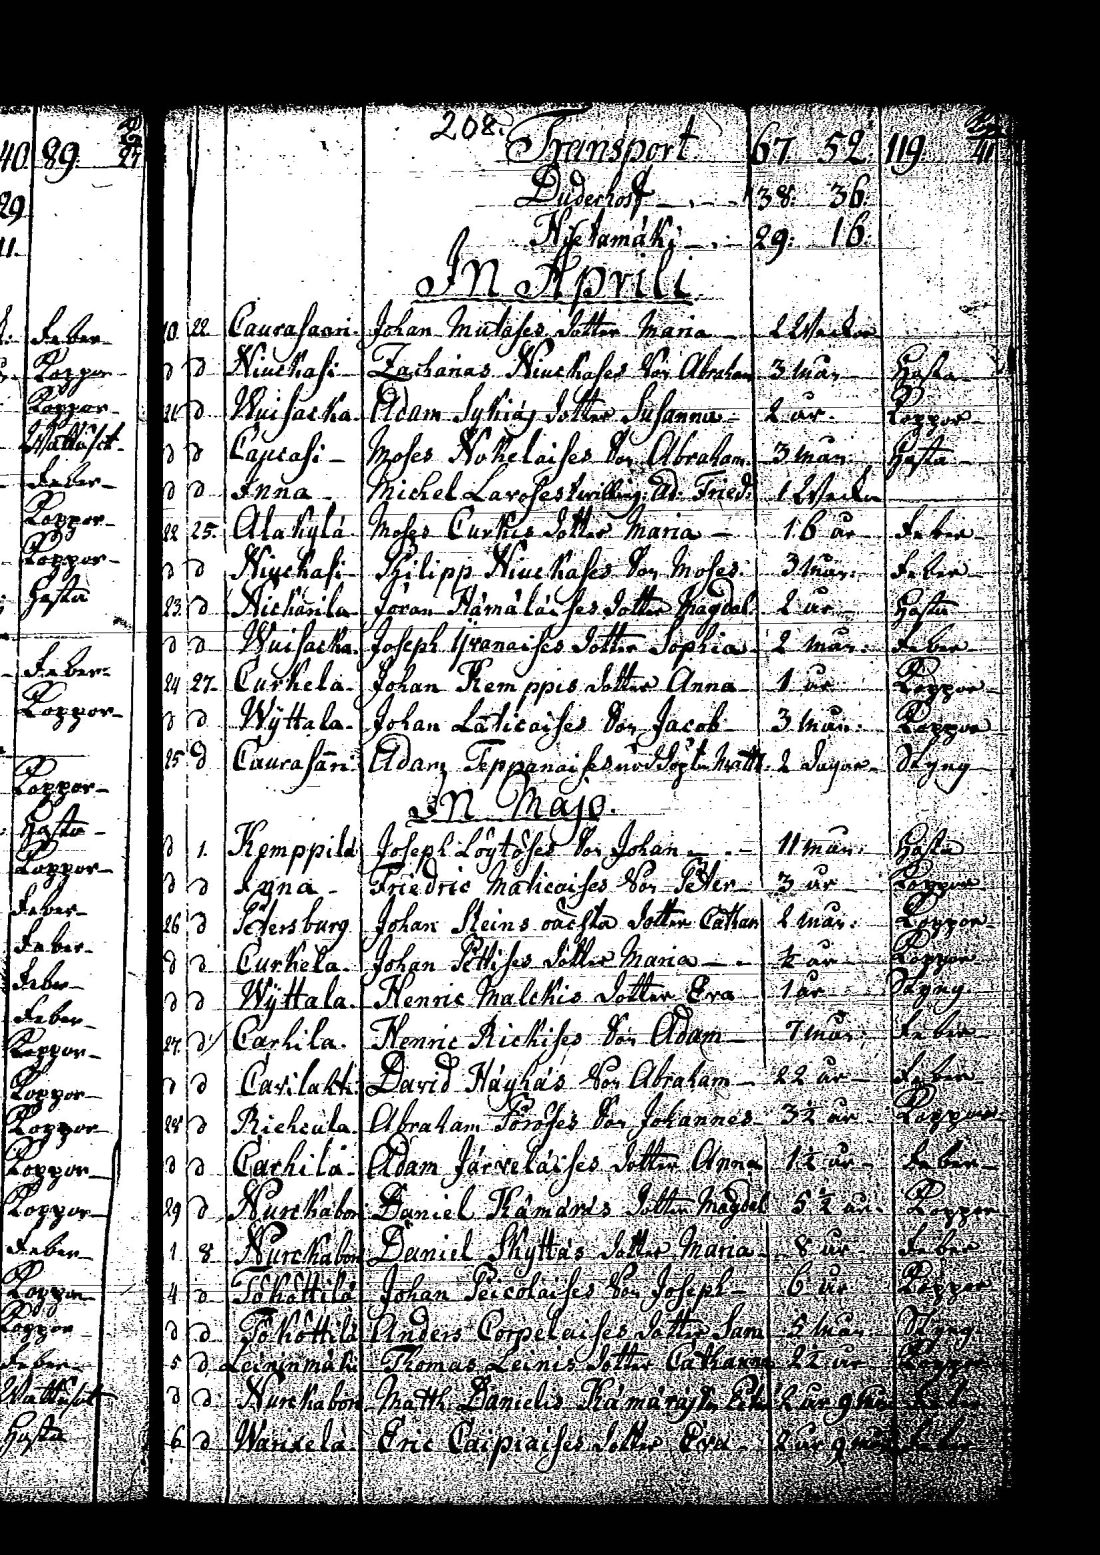 40 89.
29
11.
Feber
Koppor
Koppor
Wattusot
Feber
Koppor
Koppor
Hosta
Feber
Koppor
Koppor
Hosta
Koppor
Feber
Feber
Feber
Feber
Koppor
Koppor
Koppor
Koppor
Koppor
Feber
Koppor
Koppor
Feber
Wattusot
Hosta
208.
Transport 67. 52. 119. 41
Duderhoff 38: 36:
Hietamäki 29: 16:
In Aprili
22. Caurasaari. Johan Mulases dotter Maria 2 Weckor
d d Niuckasi Zacharias Niuckases Son Abraham 3 mån Hosta
21 d Wuisacka Adam Sykiäs dotter Susanna 2 år. Koppor
d d Capcasi Moses Nokelaises Son Abraham. 3 mån: Hosta
d d Inna Michel Lavoses twilling: Ad: Fried: 1 Wecka
22 25. Alakylä Moses Curkis dotter Maria 16 år Feber
d d Niuckasi Philipp Niuckases Son Moses: 3 mån: Feber
23. d Nickarila Jöran Hämäläises dotter Magdal. 2 år Hosta
d d Wuisacka. Joseph Yränaises dotter Sophia 2 mån: Feber
24 27. Curkela Johan Kemppis dotter Anna 1 år Koppor
d d Wÿttala. Johan Laticaises Son Jacob 3 mån: Koppor
25 d Caurasari. Adam Teppanaises 2 dagar Styng
In Majo.
d 1. Kemppilä Joseph Löytöses Son Johan 11 mån: Hosta
d d Inna Friedric Maticaises Son Peter 3 år Koppor
26 d Petersburg Johan dotter Cathar 2 mån: Koppor
d d Curkela. Johan Pettises dotter Maria ½ år Koppor
d d Wÿttala. Henric Malckis dotter Eva 1 år Styng.
27. d Carhila. Henric Rickises Son Adam 7 mån: Feber
d d Cavilakti David Häyhäs Son Abraham 22 år Feber
28 d Richcula Abraham Poroses Son Johannes 3½ år Koppor
d d Carhila Adam Järveläises dotter Anna 1½ år Feber
29 d Nurckabon Daniel Kämäräs dotter Magdal 5½ år. Koppor
1. 8 Nurckabon Daniel Skyttäs dotter Maria 8 år Feber
4 d Tököttilä Johan Peicolaises Son Joseph 6 år Koppor
d d Tököttilä Anders Corpelaises dotter Sam 5 mån: Styng
5 d Leininmäki Thomas Leinis dotter Catharina 2½ år Koppor
d d Nurckabon Matth: Danielis Kämäräs 2 år 9 mån Feber
6 d Warixela Eric Caipiaises dotter Eva 2 år 9 mån Feber